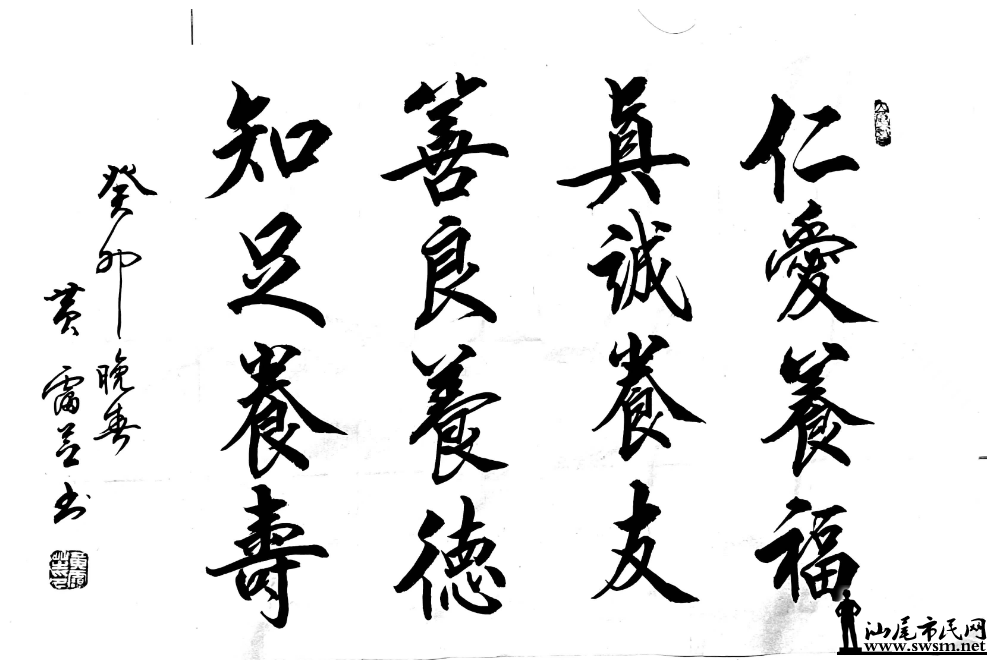 仁愛養福
真誠養友
善良養德
知足養壽
癸卯晚春
黄
書
汕尾市民网
www.swsm.net